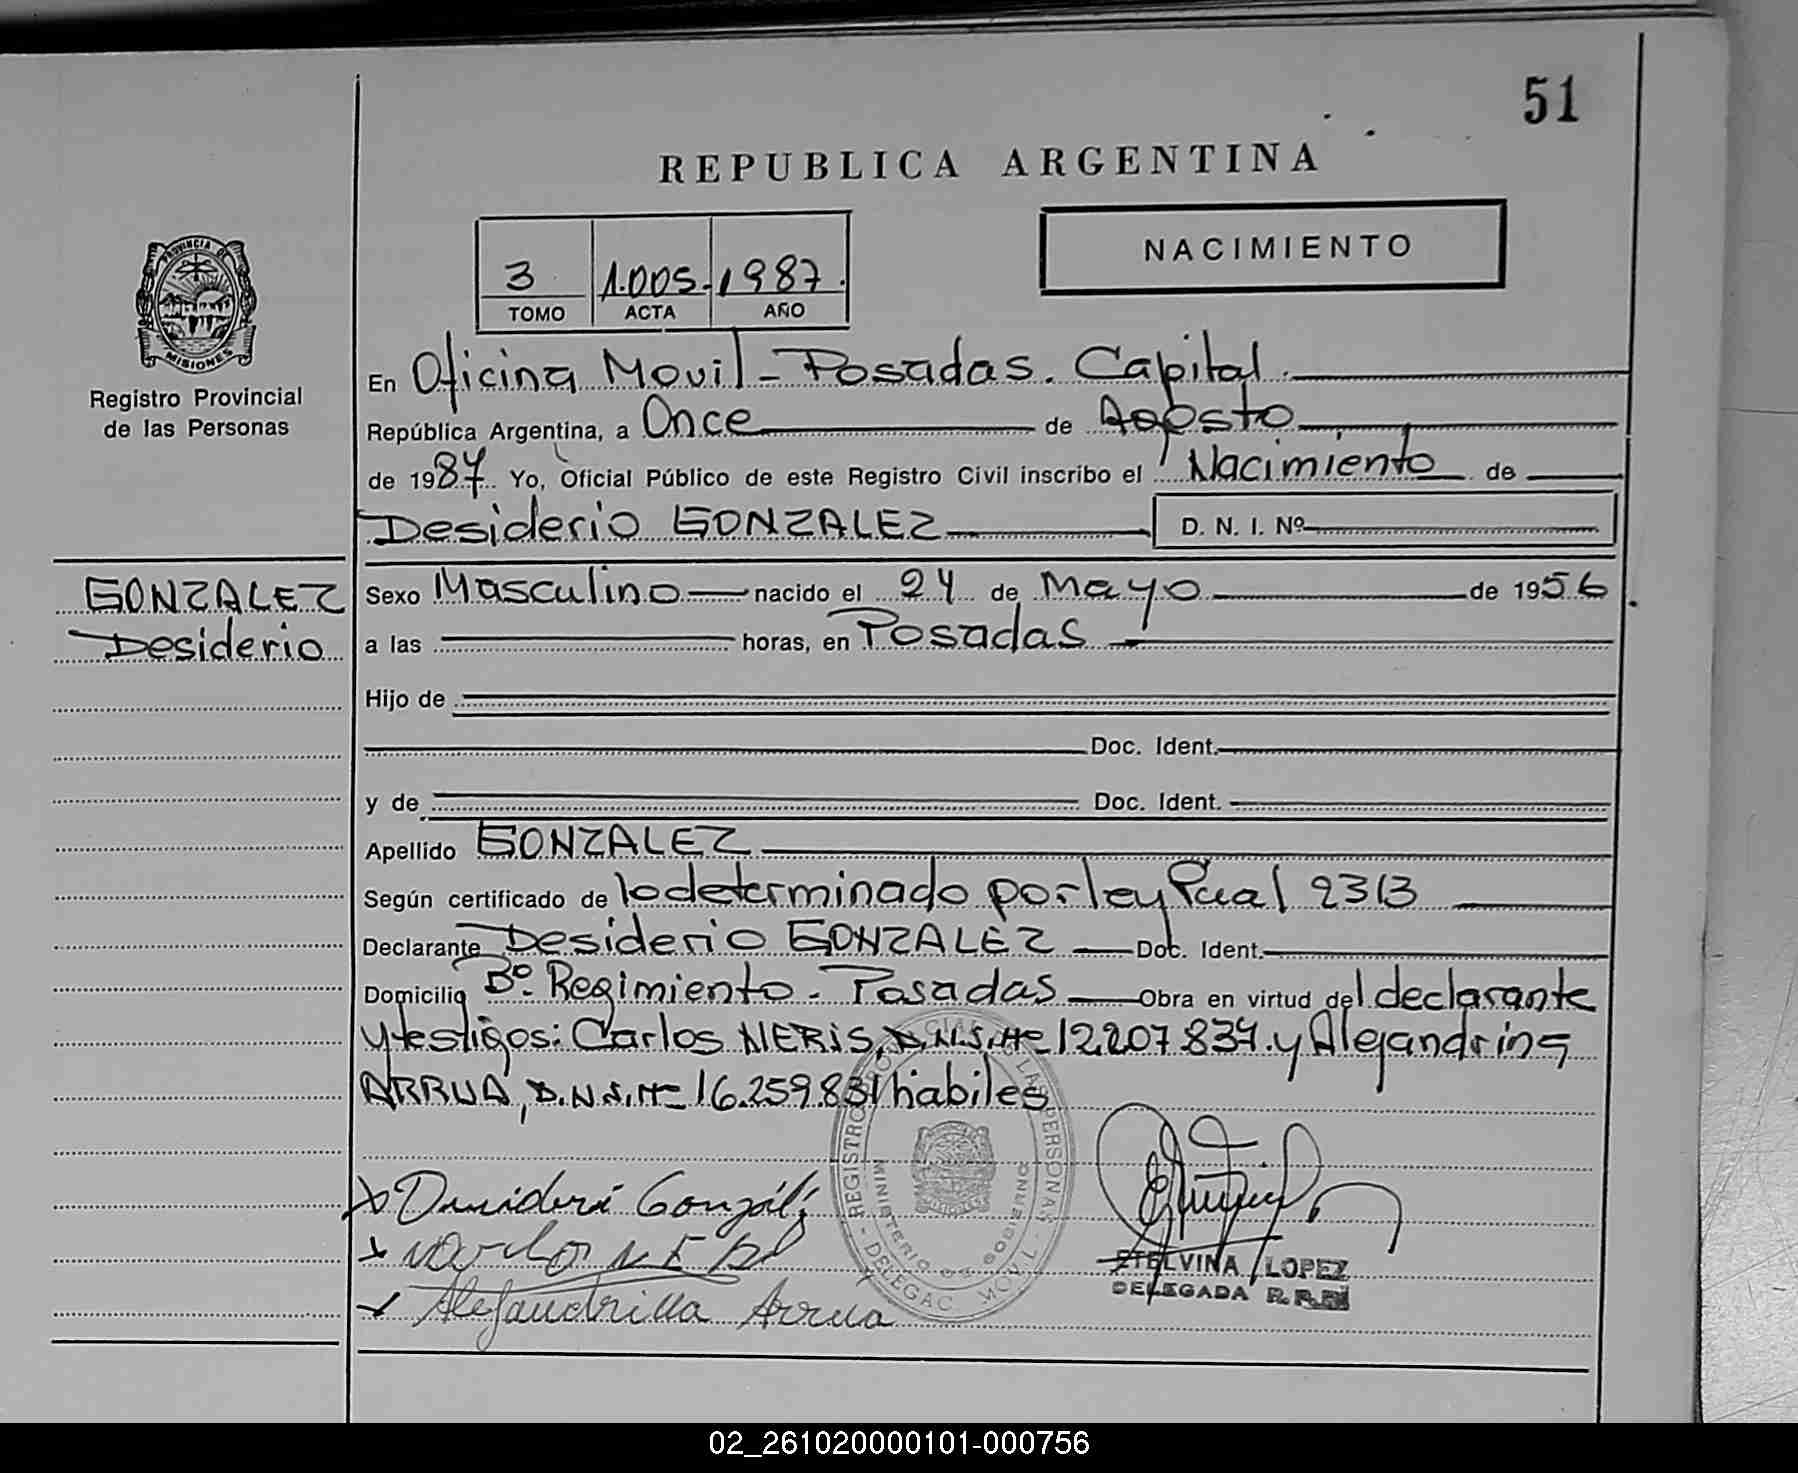 51
REPUBLICA ARGENTINA
3 1.005. 1987.
TOMO ACTA AÑO
NACIMIENTO
PROVINCIA DE MISIONES
Registro Provincial
de las Personas
GONZALEZ
Desiderio
En Oficina Movil - Posadas. Capital.
República Argentina, a Once de Agosto
de 1987. Yo, Oficial Público de este Registro Civil inscribo el Nacimiento de
Desiderio GONZALEZ D. N. I. Nº
Sexo Masculino nacido el 24 de Mayo de 1956
a las horas, en Posadas
Hijo de
Doc. Ident.
y de Doc. Ident.
Apellido GONZALEZ
Según certificado de lo determinado por ley Pcial 2313
Declarante Desiderio GONZALEZ Doc. Ident.
Domicilio Bº. Regimiento - Posadas Obra en virtud del declarante
y testigos: Carlos NERIS, D.N.I. Nº 12.207.834. y Alejandrina
ARRUA, D.N.I. Nº 16.259.831 habiles
REGISTRO PROVINCIAL DE LAS PERSONAS - DELEGAC. MOVIL -
MINISTERIO DE GOBIERNO
Gonzál
Alejandrina Arrua
ETELVINA LOPEZ
DELEGADA R.P.P.
02_261020000101-000756